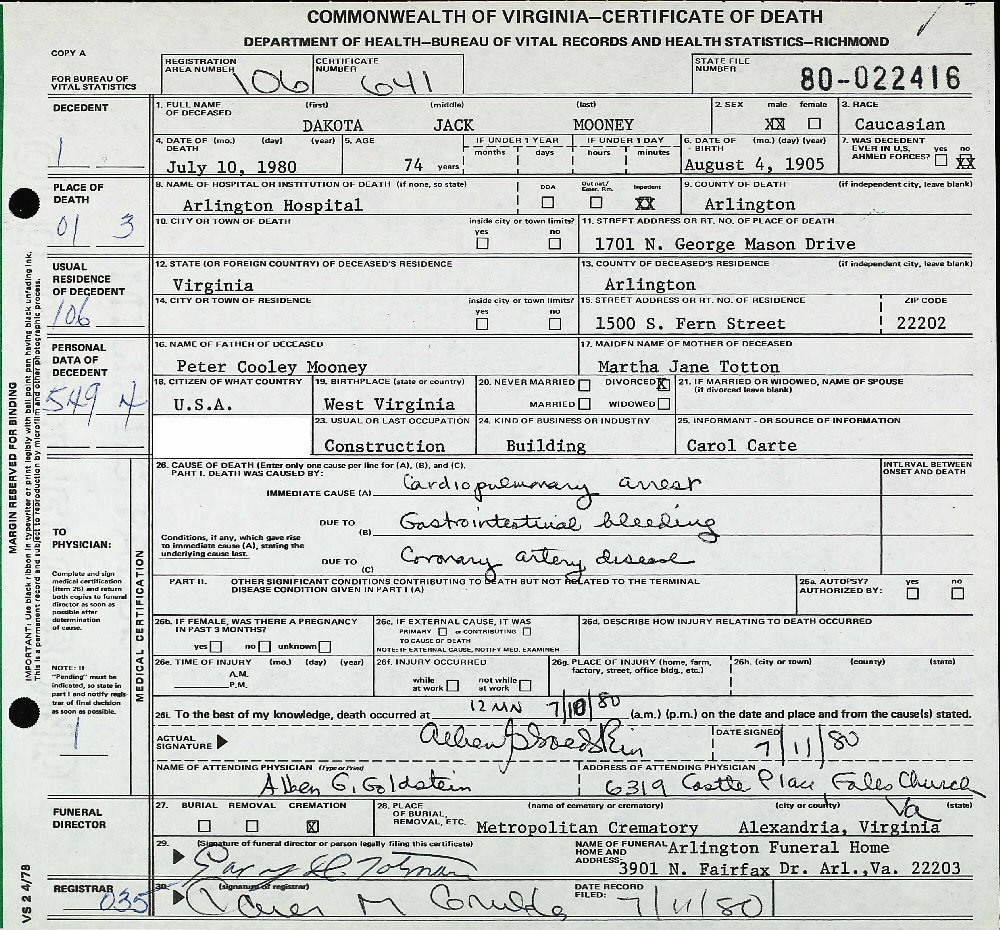 COMMONWEALTH OF VIRGINIA—CERTIFICATE OF DEATH
DEPARTMENT OF HEALTH—BUREAU OF VITAL RECORDS AND HEALTH STATISTICS—RICHMOND
COPY A
FOR BUREAU OF VITAL STATISTICS
REGISTRATION AREA NUMBER 106
CERTIFICATE NUMBER 641
STATE FILE NUMBER 80-022416
DECEDENT
1
1. FULL NAME OF DECEASED (first) (middle) (last)
DAKOTA JACK MOONEY
2. SEX male female
XX
3. RACE
Caucasian
4. DATE OF DEATH (mo.) (day) (year)
July 10, 1980
5. AGE
74 years
IF UNDER 1 YEAR months days
IF UNDER 1 DAY hours minutes
6. DATE OF BIRTH (mo.) (day) (year)
August 4, 1905
7. WAS DECEDENT EVER IN U.S. ARMED FORCES? yes no
XX
PLACE OF DEATH
01 3
8. NAME OF HOSPITAL OR INSTITUTION OF DEATH (if none, so state)
Arlington Hospital
DOA Outpat/Emer. Rm. Inpatient
XX
9. COUNTY OF DEATH (if independent city, leave blank)
Arlington
10. CITY OR TOWN OF DEATH inside city or town limits? yes no
11. STREET ADDRESS OR RT. NO. OF PLACE OF DEATH
1701 N. George Mason Drive
USUAL RESIDENCE OF DECEDENT
106
12. STATE (OR FOREIGN COUNTRY) OF DECEASED'S RESIDENCE
Virginia
13. COUNTY OF DECEASED'S RESIDENCE (if independent city, leave blank)
Arlington
14. CITY OR TOWN OF RESIDENCE inside city or town limits? yes no
15. STREET ADDRESS OR RT. NO. OF RESIDENCE ZIP CODE
1500 S. Fern Street 22202
PERSONAL DATA OF DECEDENT
549 4
16. NAME OF FATHER OF DECEASED
Peter Cooley Mooney
17. MAIDEN NAME OF MOTHER OF DECEASED
Martha Jane Totton
18. CITIZEN OF WHAT COUNTRY
U.S.A.
19. BIRTHPLACE (state or country)
West Virginia
20. NEVER MARRIED DIVORCED X
MARRIED WIDOWED
21. IF MARRIED OR WIDOWED, NAME OF SPOUSE
(if divorced leave blank)
23. USUAL OR LAST OCCUPATION
Construction
24. KIND OF BUSINESS OR INDUSTRY
Building
25. INFORMANT - OR SOURCE OF INFORMATION
Carol Carte
MARGIN RESERVED FOR BINDING
IMPORTANT: Use black ribbon in typewriter or print legibly with ball point pen having black unfading ink.
This is a permanent record and subject to reproduction by microfilm and other photographic process.
TO PHYSICIAN:
Complete and sign medical certification (item 26) and return both copies to funeral director as soon as possible after determination of cause.
NOTE: If "Pending" must be indicated, so state in part I and notify registrar of final decision as soon as possible.
1
MEDICAL CERTIFICATION
26. CAUSE OF DEATH (Enter only one cause per line for (A), (B), and (C).
PART I. DEATH WAS CAUSED BY:
INTERVAL BETWEEN ONSET AND DEATH
IMMEDIATE CAUSE (A) Cardiopulmonary arrest
DUE TO (B) Gastrointestinal bleeding
Conditions, if any, which gave rise to immediate cause (A), stating the underlying cause last.
DUE TO (C) Coronary artery disease
PART II. OTHER SIGNIFICANT CONDITIONS CONTRIBUTING TO DEATH BUT NOT RELATED TO THE TERMINAL DISEASE CONDITION GIVEN IN PART I (A)
26a. AUTOPSY? AUTHORIZED BY: yes no
26b. IF FEMALE, WAS THERE A PREGNANCY IN PAST 3 MONTHS?
yes no unknown
26c. IF EXTERNAL CAUSE, IT WAS
PRIMARY or CONTRIBUTING
TO CAUSE OF DEATH
NOTE: IF EXTERNAL CAUSE, NOTIFY MED. EXAMINER
26d. DESCRIBE HOW INJURY RELATING TO DEATH OCCURRED
26e. TIME OF INJURY (mo.) (day) (year)
A.M.
P.M.
26f. INJURY OCCURRED
while at work not while at work
26g. PLACE OF INJURY (home, farm, factory, street, office bldg., etc.)
26h. (city or town) (county) (state)
26i. To the best of my knowledge, death occurred at 12 MN 7/10/80 (a.m.) (p.m.) on the date and place and from the cause(s) stated.
ACTUAL SIGNATURE
DATE SIGNED 7/11/80
NAME OF ATTENDING PHYSICIAN (Type or Print)
Alben G. Goldstein
ADDRESS OF ATTENDING PHYSICIAN
6319 Castle Place, Falls Church Va
FUNERAL DIRECTOR
27. BURIAL REMOVAL CREMATION
X
28. PLACE OF BURIAL, REMOVAL, ETC. (name of cemetery or crematory) (city or county) (state)
Metropolitan Crematory Alexandria, Virginia
29. (Signature of funeral director or person legally filing this certificate)
NAME OF FUNERAL HOME AND ADDRESS
Arlington Funeral Home
3901 N. Fairfax Dr. Arl.,Va. 22203
REGISTRAR
035
30. (signature of registrar)
DATE RECORD FILED: 7/11/80
VS 2 4/78